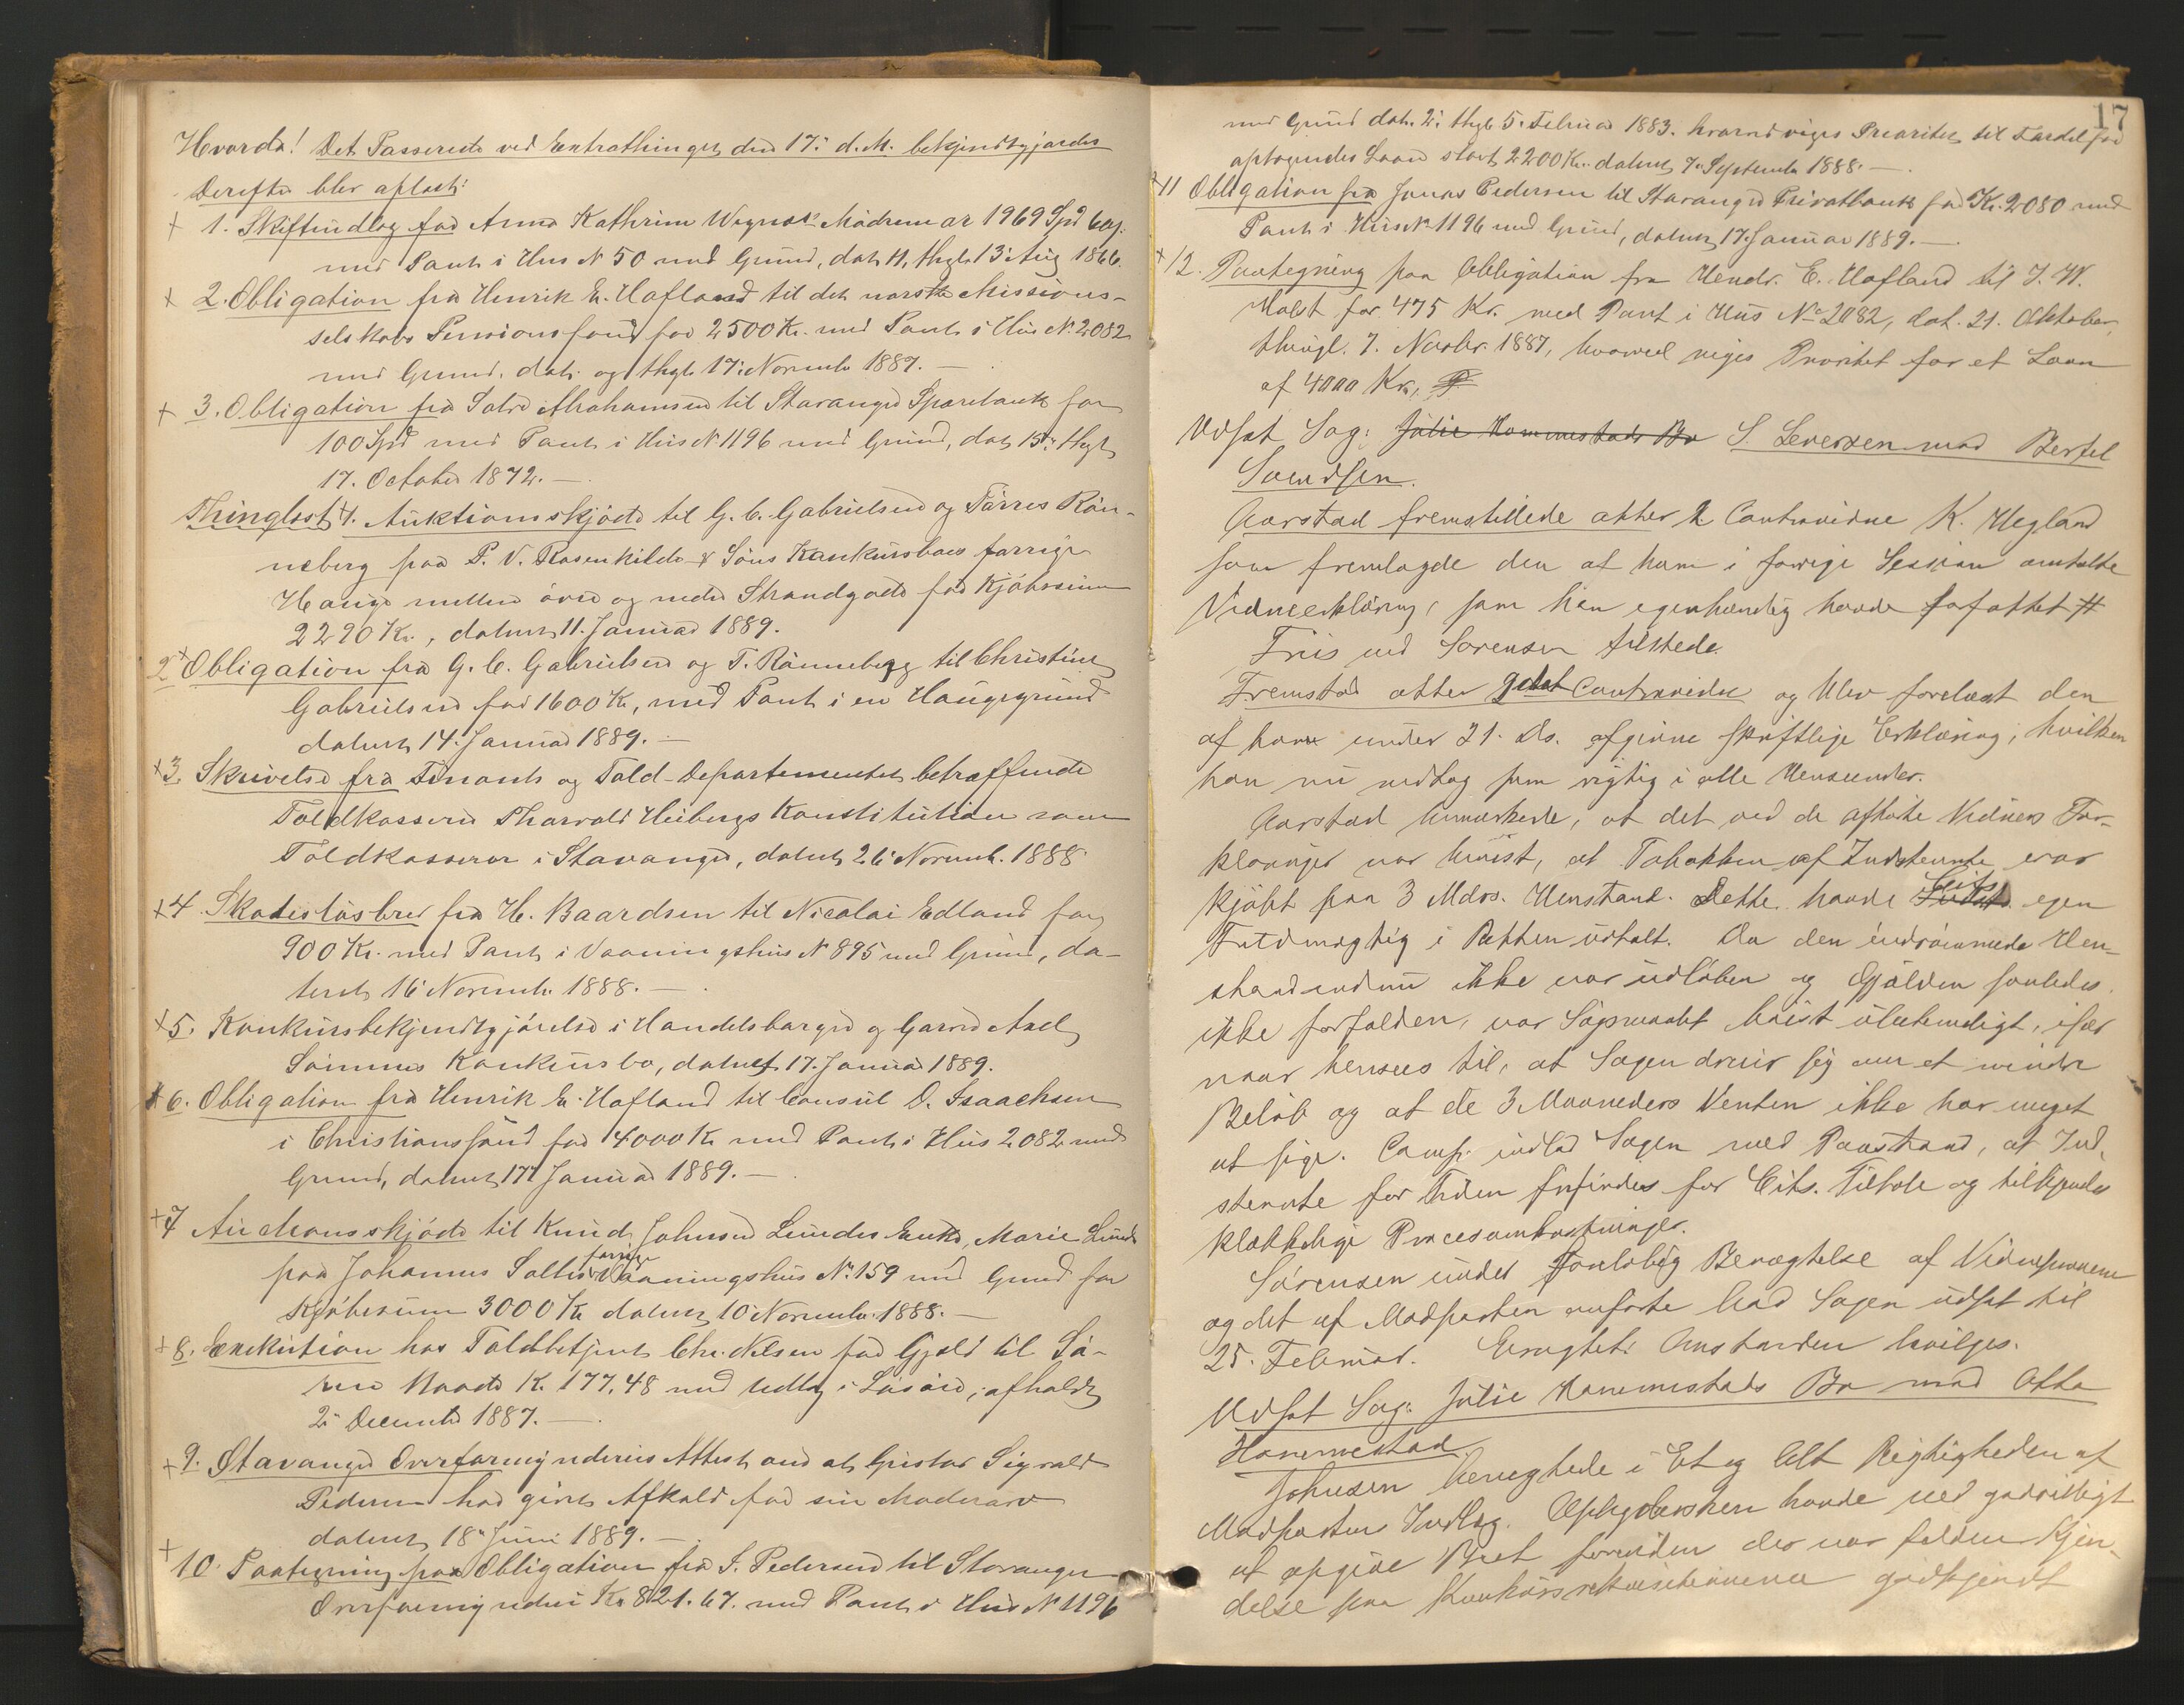 Hvorda! Det Passerede ved Extrathinget den 17. d. M. bekjendtgjordes
Derefter blev aflæst:
+ 1. Skifteudlæg for Anna Kathrine Wegners Mödrenear 1969 Spd 60
med Pant i Hus N 50 med Grund, dat. 11, thgl. 13 Aug 1866.
+ 2. Obligation fra Henrik E. Hafland til det norske Missions-
selskabs Pensionsfond for 2500 Kr. med Pant i Hus N. 2082
med Grund. dat. og thgl. 17. Novemb. 1887. —
+ 3. Obligation fra Abrahamsen til Stavanger Sparebank for
100 Spd med Pant i Hus N 1196 med Grund, dat. 15. thgl.
17. October 1872. —
Thinglæst: 1. Auktionsskjöde til G. C. Gabrielsen og Törres Rön-
neberg paa P. V. Rosenkilde & Söns Konkursboes forrige
Hauge mellem övre og nedre Strandgade for Kjöbesum
2290 Kr., dateret 11. Januar 1889.
2 + Obligation fra G. C. Gabrielsen og T. Rönneberg til Christine
Gabrielsen for 1600 Kr, med Pant i en Haugegrund
dateret 14. Januar 1889. —
+ 3. Skrivelse fra Finants og Told-Departementet betræffende
Toldkasserer Thorvald Heibergs Konstitution som
Toldkasserer i Stavanger, dateret 26 Novemb. 1888
+ 4 Skadeslösbrev fra H. Baardsen til Nicolai Edland for
900 Kr. med Pant i Vaaningshus N 895 med Grund, da-
teret 16 Novemb. 1888. —
+ 5. Konkursbekjendtgjörelse i Handelsborger og Garver Axel
Sömmes Konkursbo, dateret 17. Januar 1889.
+ 6. Obligation fra Henrik E. Hafland til Consul D. Isaachsen
i Christianssand for 4000 Kr med Pant i Hus 2082 med
Grund, dateret 17 Januar 1889. —
+ 7 Auctionsskjöde til Knud Johnsen Lundes Enke, Marie Lunde
paa Johannes forrige Vaaningshus No. 159 med Grund for
Kjöbesum 3000 Kr dateret 10 Novemb. 1888. —
+ 8. Exekution hos Toldbetjent Chr. Nilsen for Gjæld til Sö-
ren K. 177,48 med Udlæg i Lösöre; afholdt
2. December 1887. —
+ 9. Stavanger Overformynderies Attest om at Gustav Sigvald
Pedersen har givet Afkald for sin Mödrearv
dateret 18 Juni 1889. —
+ 10. Paategning paa Obligation fra J. Pedersen til Stavanger
Overformynderi Kr 821.67. med Pant i Hus N 1196
17
med Grund dat. 2. thgl. 5. Februar 1883. hvorved viges Prioritet til Fordel for
optagendes Laan stort 2200 Kr. dateret 7. September 1888. —
+ 11 Obligation fra Jonas Pedersen til Stavanger Privatbank for Kr. 2080 med
Pant i Hus N. 1196 med Grund, dateret 17. Januar 1889. —
+ 12. Paategning paa Obligation fra Hendr. E. Hafland til J. W.
Holst for 475 Kr. med Pant i Hus No 2082, dat. 21. Oktober,
thingl. 7. Novbr. 1887, hvorved viges Prioritet for et Laan
af 4000 Kr.
Udsat Sag: Julie Hommestads Bo S. Seversen mod Bertel
Svendsen.
Aarstad fremstillede atter Contravidne K. Hegland
som fremlagde den af ham i forrige Session omtalte
Vidneerklæring, som han egenhændig havde forfattet #
Friis ved Sorensen tilstede.
Fremstod atter Contravidne og blev forelæst den
af ham under 21. ds. afgivne skriftlige Erklæring, hvilken
han nu vedtog som rigtig i alle Henseender.
Aarstad bemærkede, at det ved de afhörte Vidners For-
klaringer var bevist, at Tobakken af Indstevnte var
kjöbt paa 3 Mdrs. Henstand. Dette havde Cits. egen
Fuldmægtig i Retten udtalt. Da den indrömmede Hen-
stand endnu ikke var udlöben og Gjælden saaledes
ikke forfalden, var Sögsmaalet höist ubetimeligt, især
naar henses til, at Sagen dreier sig om et mindre
Belöb og at de 3 Maaneders Venten ikke har meget
at sige. Comp. indlod Sagen med Paastand, at Ind-
stevnte for Tiden frifindes for Cits. Tiltale og tilkjendes
klækkelige Procesomkostninger.
Sörensen under forelöbig Benægtelse af Vidneprovene
og det af Modparten anförte bad Sagen udsat til
25. Februar. Eragtet: Anstanden bevilges.
Udsat Sag: Julie Hommestads Bo mod Otto
Hommestad.
Johnsen benegtede i Et og Alt Rigtigheden af
Modpartens Indlæg. Opbyderskens havde ved godvilligt
at opgive Boet forinden der var falden Kjen-
delse paa godkjendt